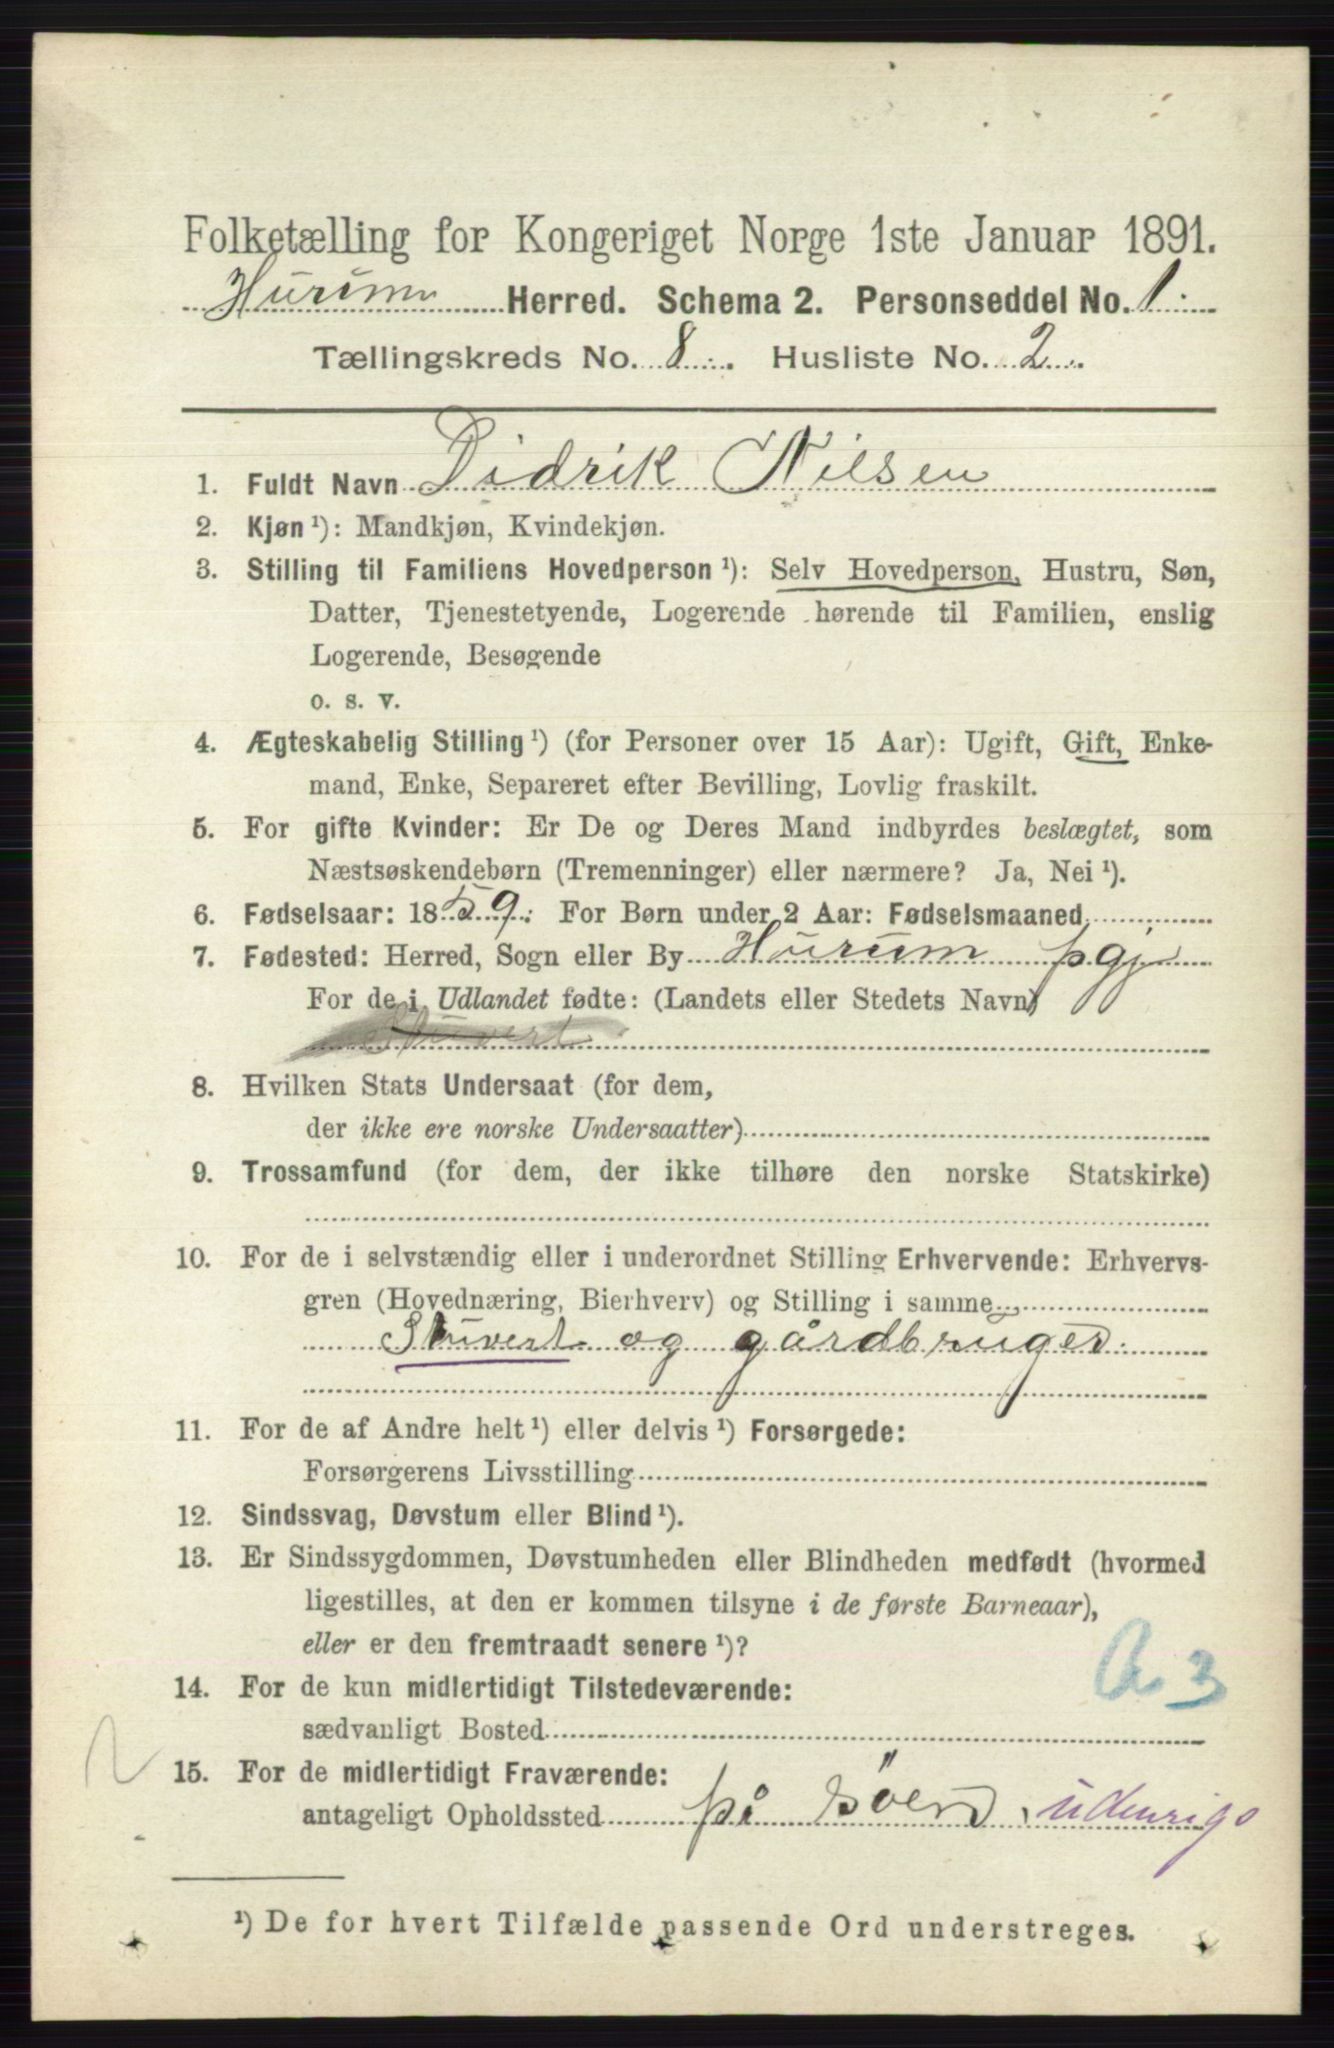 Folketælling for Kongeriget Norge 1ste Januar 1891.
Hurum Herred. Schema 2. Personseddel No. 1.
Tællingskreds No. 8. Husliste No. 2.
1. Fuldt Navn Didrik Nilsen
2. Kjøn ¹): Mandkjøn, Kvindekjøn.
3. Stilling til Familiens Hovedperson ¹): Selv Hovedperson, Hustru, Søn,
Datter, Tjenestetyende, Logerende hørende til Familien, enslig
Logerende, Besøgende
o. s. v.
4. Ægteskabelig Stilling ¹) (for Personer over 15 Aar): Ugift, Gift, Enke-
mand, Enke, Separeret efter Bevilling, Lovlig fraskilt.
5. For gifte Kvinder: Er De og Deres Mand indbyrdes beslægtet, som
Næstsøskendebørn (Tremenninger) eller nærmere? Ja, Nei ¹).
6. Fødselsaar: 1859. For Børn under 2 Aar: Fødselsmaaned
7. Fødested: Herred, Sogn eller By Hurum pgj
For de i Udlandet fødte: (Landets eller Stedets Navn)
Stuvert
8. Hvilken Stats Undersaat (for dem,
der ikke ere norske Undersaatter)
9. Trossamfund (for dem, der ikke tilhøre den norske Statskirke)
10. For de i selvstændig eller i underordnet Stilling Erhvervende: Erhvervs-
gren (Hovednæring, Bierhverv) og Stilling i samme
Stuvert og gårdbruger.
11. For de af Andre helt ¹) eller delvis ¹) Forsørgede:
Forsørgerens Livsstilling
12. Sindssvag, Døvstum eller Blind ¹).
13. Er Sindssygdommen, Døvstumheden eller Blindheden medfødt (hvormed
ligestilles, at den er kommen tilsyne i de første Barneaar),
eller er den fremtraadt senere ¹)?
14. For de kun midlertidigt Tilstedeværende:
sædvanligt Bosted
15. For de midlertidigt Fraværende:
antageligt Opholdssted på Søen, udenrigs
¹) De for hvert Tilfælde passende Ord understreges.